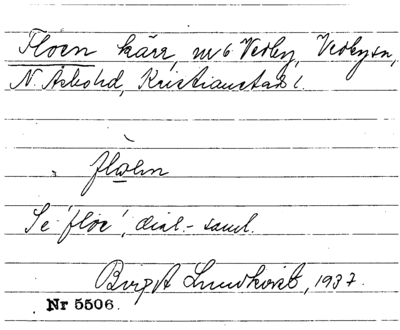 Floen kärr, nr 6 Verby, Verbysn,
N. Åsbohd, Kristianstads l.
Se 'floe', dial.-saml.
Birgit Lundkvist, 1937.
Nr 5506.